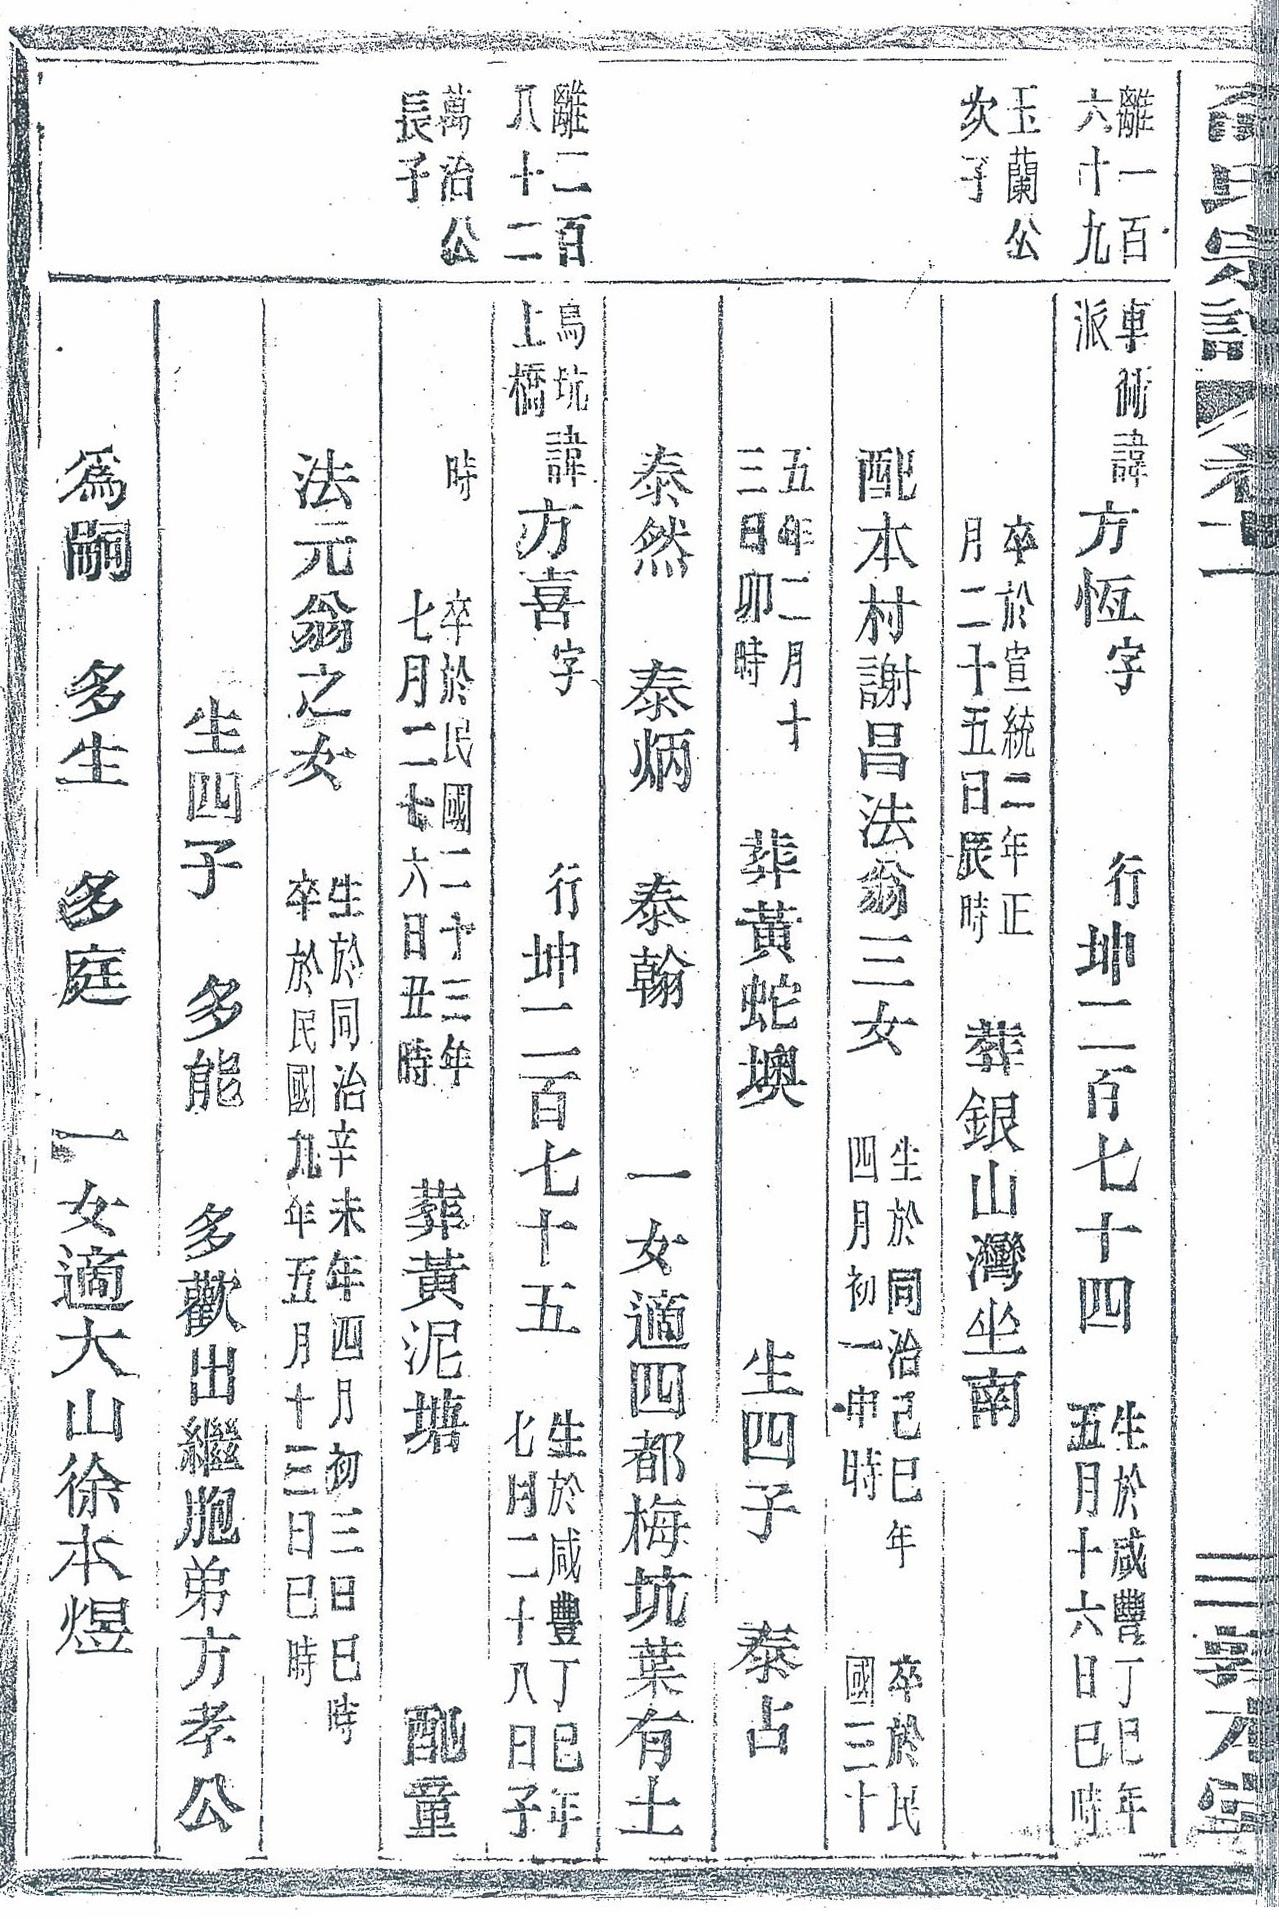 氏宗譜 卷二 三 敦本堂
離一百
六十九
玉蘭公
次子
離二百
八十二
萬治公
長子
車衕諱方恆字 行坤二百七十四 生於咸豐丁巳年
派 五月十六日巳時
卒於宣統二年正
月二十五日辰時 葬銀山灣坐南
配本村謝昌法翁三女 生於同治己巳年 卒於民
四月初一申時 國三十
五年二月十
三日卯時 葬黃蛇墺 生四子 泰占
泰然 泰炳 泰翰 一女適四都梅坑葉有土
烏坑諱方喜字 行坤二百七十五 生於咸豐丁巳年
上橋 七月二十八日子
時 卒於民國二十三年
七月二七六日丑時 葬黃泥塘 配童
法元翁之女 生於同治辛未年四月初三日巳時
卒於民國九年五月十三日巳時
生四子 多能 多歡出繼胞弟方孝公
為嗣 多生 多庭 一女適大山徐本煜